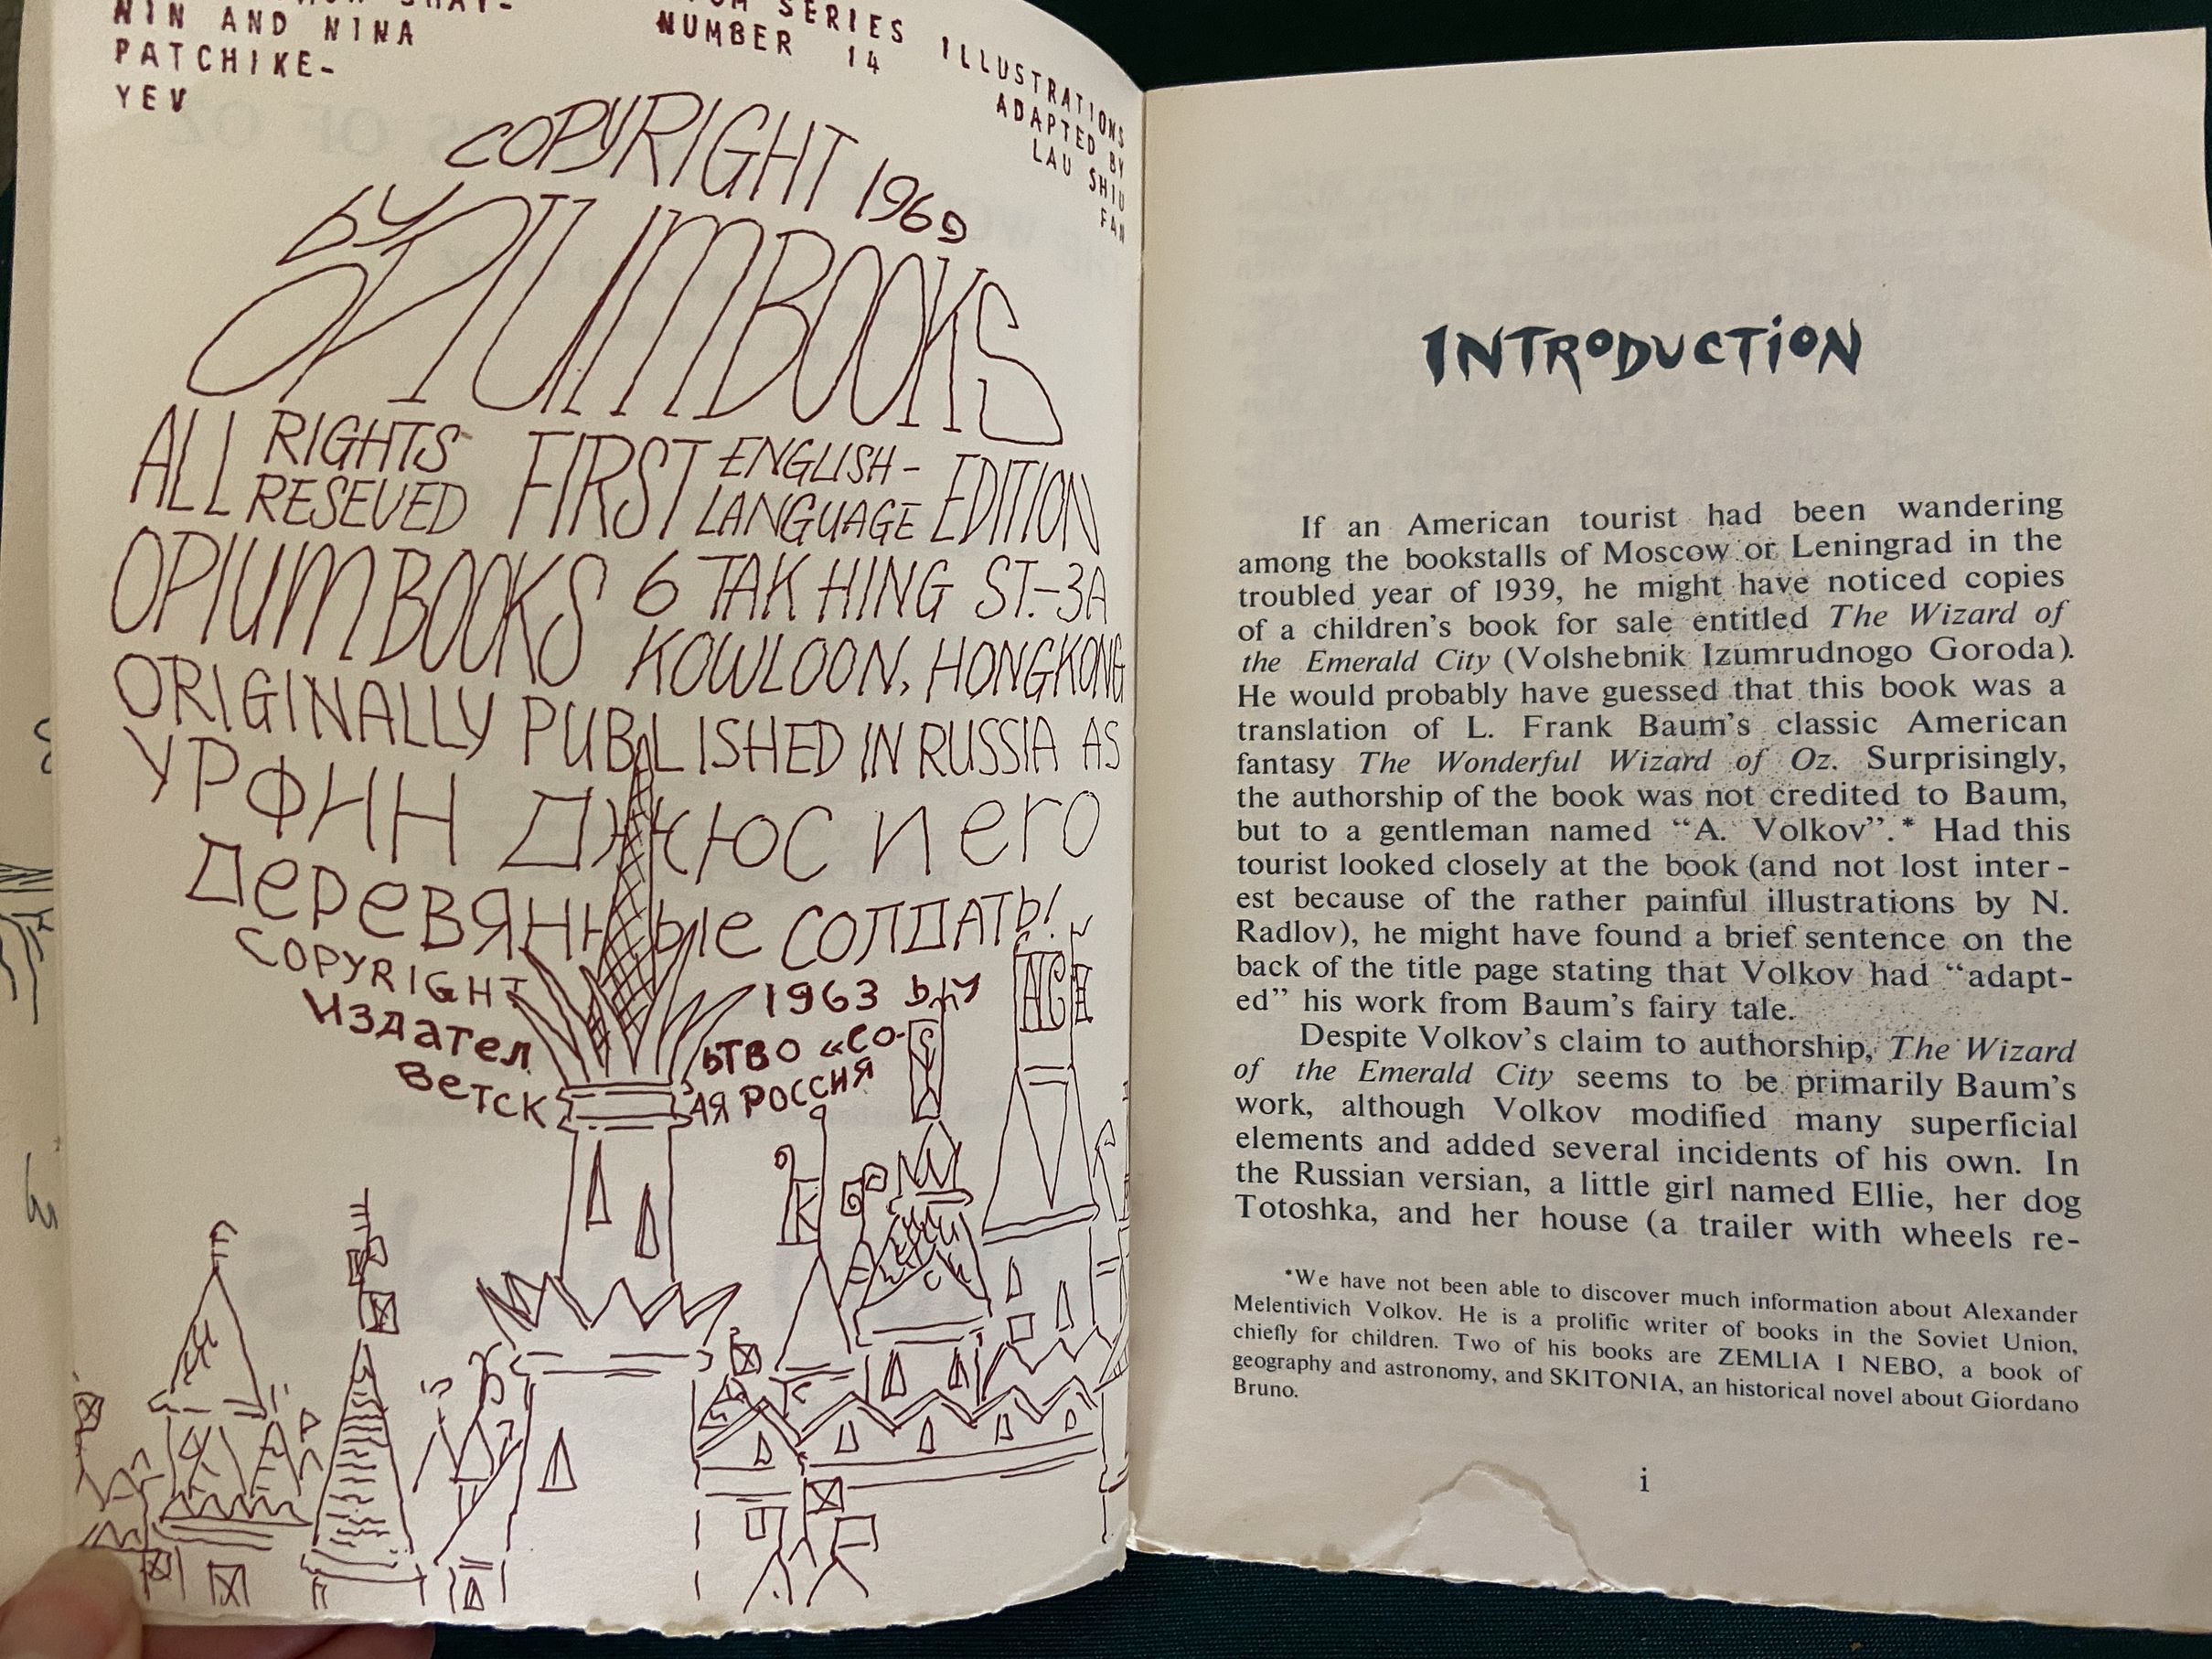 NIN AND NINA
PATCHIKE-
YEV
SERIES
NUMBER 14
ILLUSTRATIONS
ADAPTED BY
LAU SHIU
FAN
COPYRIGHT 1969
by
OPIUMBOOKS
ALL RIGHTS RESEVED FIRST ENGLISH-LANGUAGE EDITION
OPIUMBOOKS 6 TAK HING ST.-3A
KOWLOON, HONGKONG
ORIGINALLY PUBLISHED IN RUSSIA AS
УРФИН ДЖЮС И ЕГО
ДЕРЕВЯННЫЕ СОЛДАТЫ
COPYRIGHT 1963 by
ИЗДАТЕЛЬТВО «СО-
ВЕТСКАЯ РОССИЯ
INTRODUCTION
If an American tourist had been wandering
among the bookstalls of Moscow or Leningrad in the
troubled year of 1939, he might have noticed copies
of a children's book for sale entitled The Wizard of
the Emerald City (Volshebnik Izumrudnogo Goroda).
He would probably have guessed that this book was a
translation of L. Frank Baum's classic American
fantasy The Wonderful Wizard of Oz. Surprisingly,
the authorship of the book was not credited to Baum,
but to a gentleman named “A. Volkov”.* Had this
tourist looked closely at the book (and not lost inter-
est because of the rather painful illustrations by N.
Radlov), he might have found a brief sentence on the
back of the title page stating that Volkov had “adapt-
ed” his work from Baum's fairy tale.
Despite Volkov's claim to authorship, The Wizard
of the Emerald City seems to be primarily Baum's
work, although Volkov modified many superficial
elements and added several incidents of his own. In
the Russian versian, a little girl named Ellie, her dog
Totoshka, and her house (a trailer with wheels re-
*We have not been able to discover much information about Alexander
Melentivich Volkov. He is a prolific writer of books in the Soviet Union,
chiefly for children. Two of his books are ZEMLIA I NEBO, a book of
geography and astronomy, and SKITONIA, an historical novel about Giordano
Bruno.
i